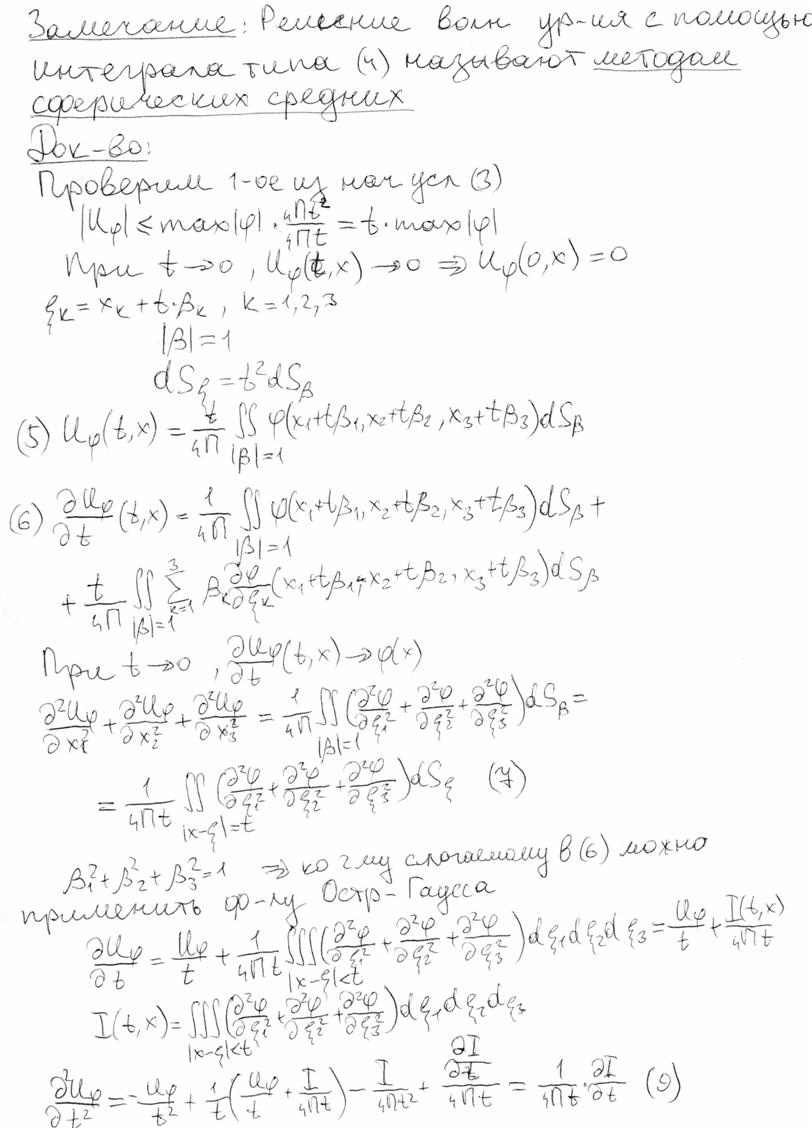 Замечание: Решение волн ур-ия с помощью
интеграла типа (4) называют методом
сферических средних
Док-во:
Проверим 1-ое из нач усл (3)
|Uφ| ≤ max|φ| · 4Πt²/4Πt = t·max|φ|
При t→0, Uφ(t,x)→0 ⇒ Uφ(0,x)=0
ξₖ = xₖ + t·βₖ, k=1,2,3
|β|=1
dS_ξ = t²dS_β
(5) Uφ(t,x) = t/4Π ∬_{|β|=1} φ(x₁+tβ₁, x₂+tβ₂, x₃+tβ₃)dS_β
(6) ∂Uφ/∂t (t,x) = 1/4Π ∬_{|β|=1} φ(x₁+tβ₁, x₂+tβ₂, x₃+tβ₃)dS_β +
+ t/4Π ∬_{|β|=1} ∑_{k=1}^{3} βₖ ∂φ/∂ξₖ (x₁+tβ₁, x₂+tβ₂, x₃+tβ₃)dS_β
При t→0, ∂Uφ/∂t (t,x)→φ(x)
∂²Uφ/∂x₁² + ∂²Uφ/∂x₂² + ∂²Uφ/∂x₃² = 1/4Π ∬_{|β|=1} (∂²φ/∂ξ₁² + ∂²φ/∂ξ₂² + ∂²φ/∂ξ₃²)dS_β =
= 1/4Πt ∬_{|x-ξ|=t} (∂²φ/∂ξ₁² + ∂²φ/∂ξ₂² + ∂²φ/∂ξ₃²)dS_ξ (7)
β₁²+β₂²+β₃²=1 ⇒ ко 2му слогаемому в (6) можно
применить ф-лу Остр-Гаусса
∂Uφ/∂t = Uφ/t + 1/4Πt ∭_{|x-ξ|<t} (∂²φ/∂ξ₁² + ∂²φ/∂ξ₂² + ∂²φ/∂ξ₃²) dξ₁dξ₂dξ₃ = Uφ/t + I(t,x)/4Πt
I(t,x) = ∭_{|x-ξ|<t} (∂²φ/∂ξ₁² + ∂²φ/∂ξ₂² + ∂²φ/∂ξ₃²)dξ₁dξ₂dξ₃
∂²Uφ/∂t² = -Uφ/t² + 1/t(Uφ/t + I/4Πt) - I/4Πt² + ∂I/∂t/4Πt = 1/4Πt · ∂I/∂t (9)